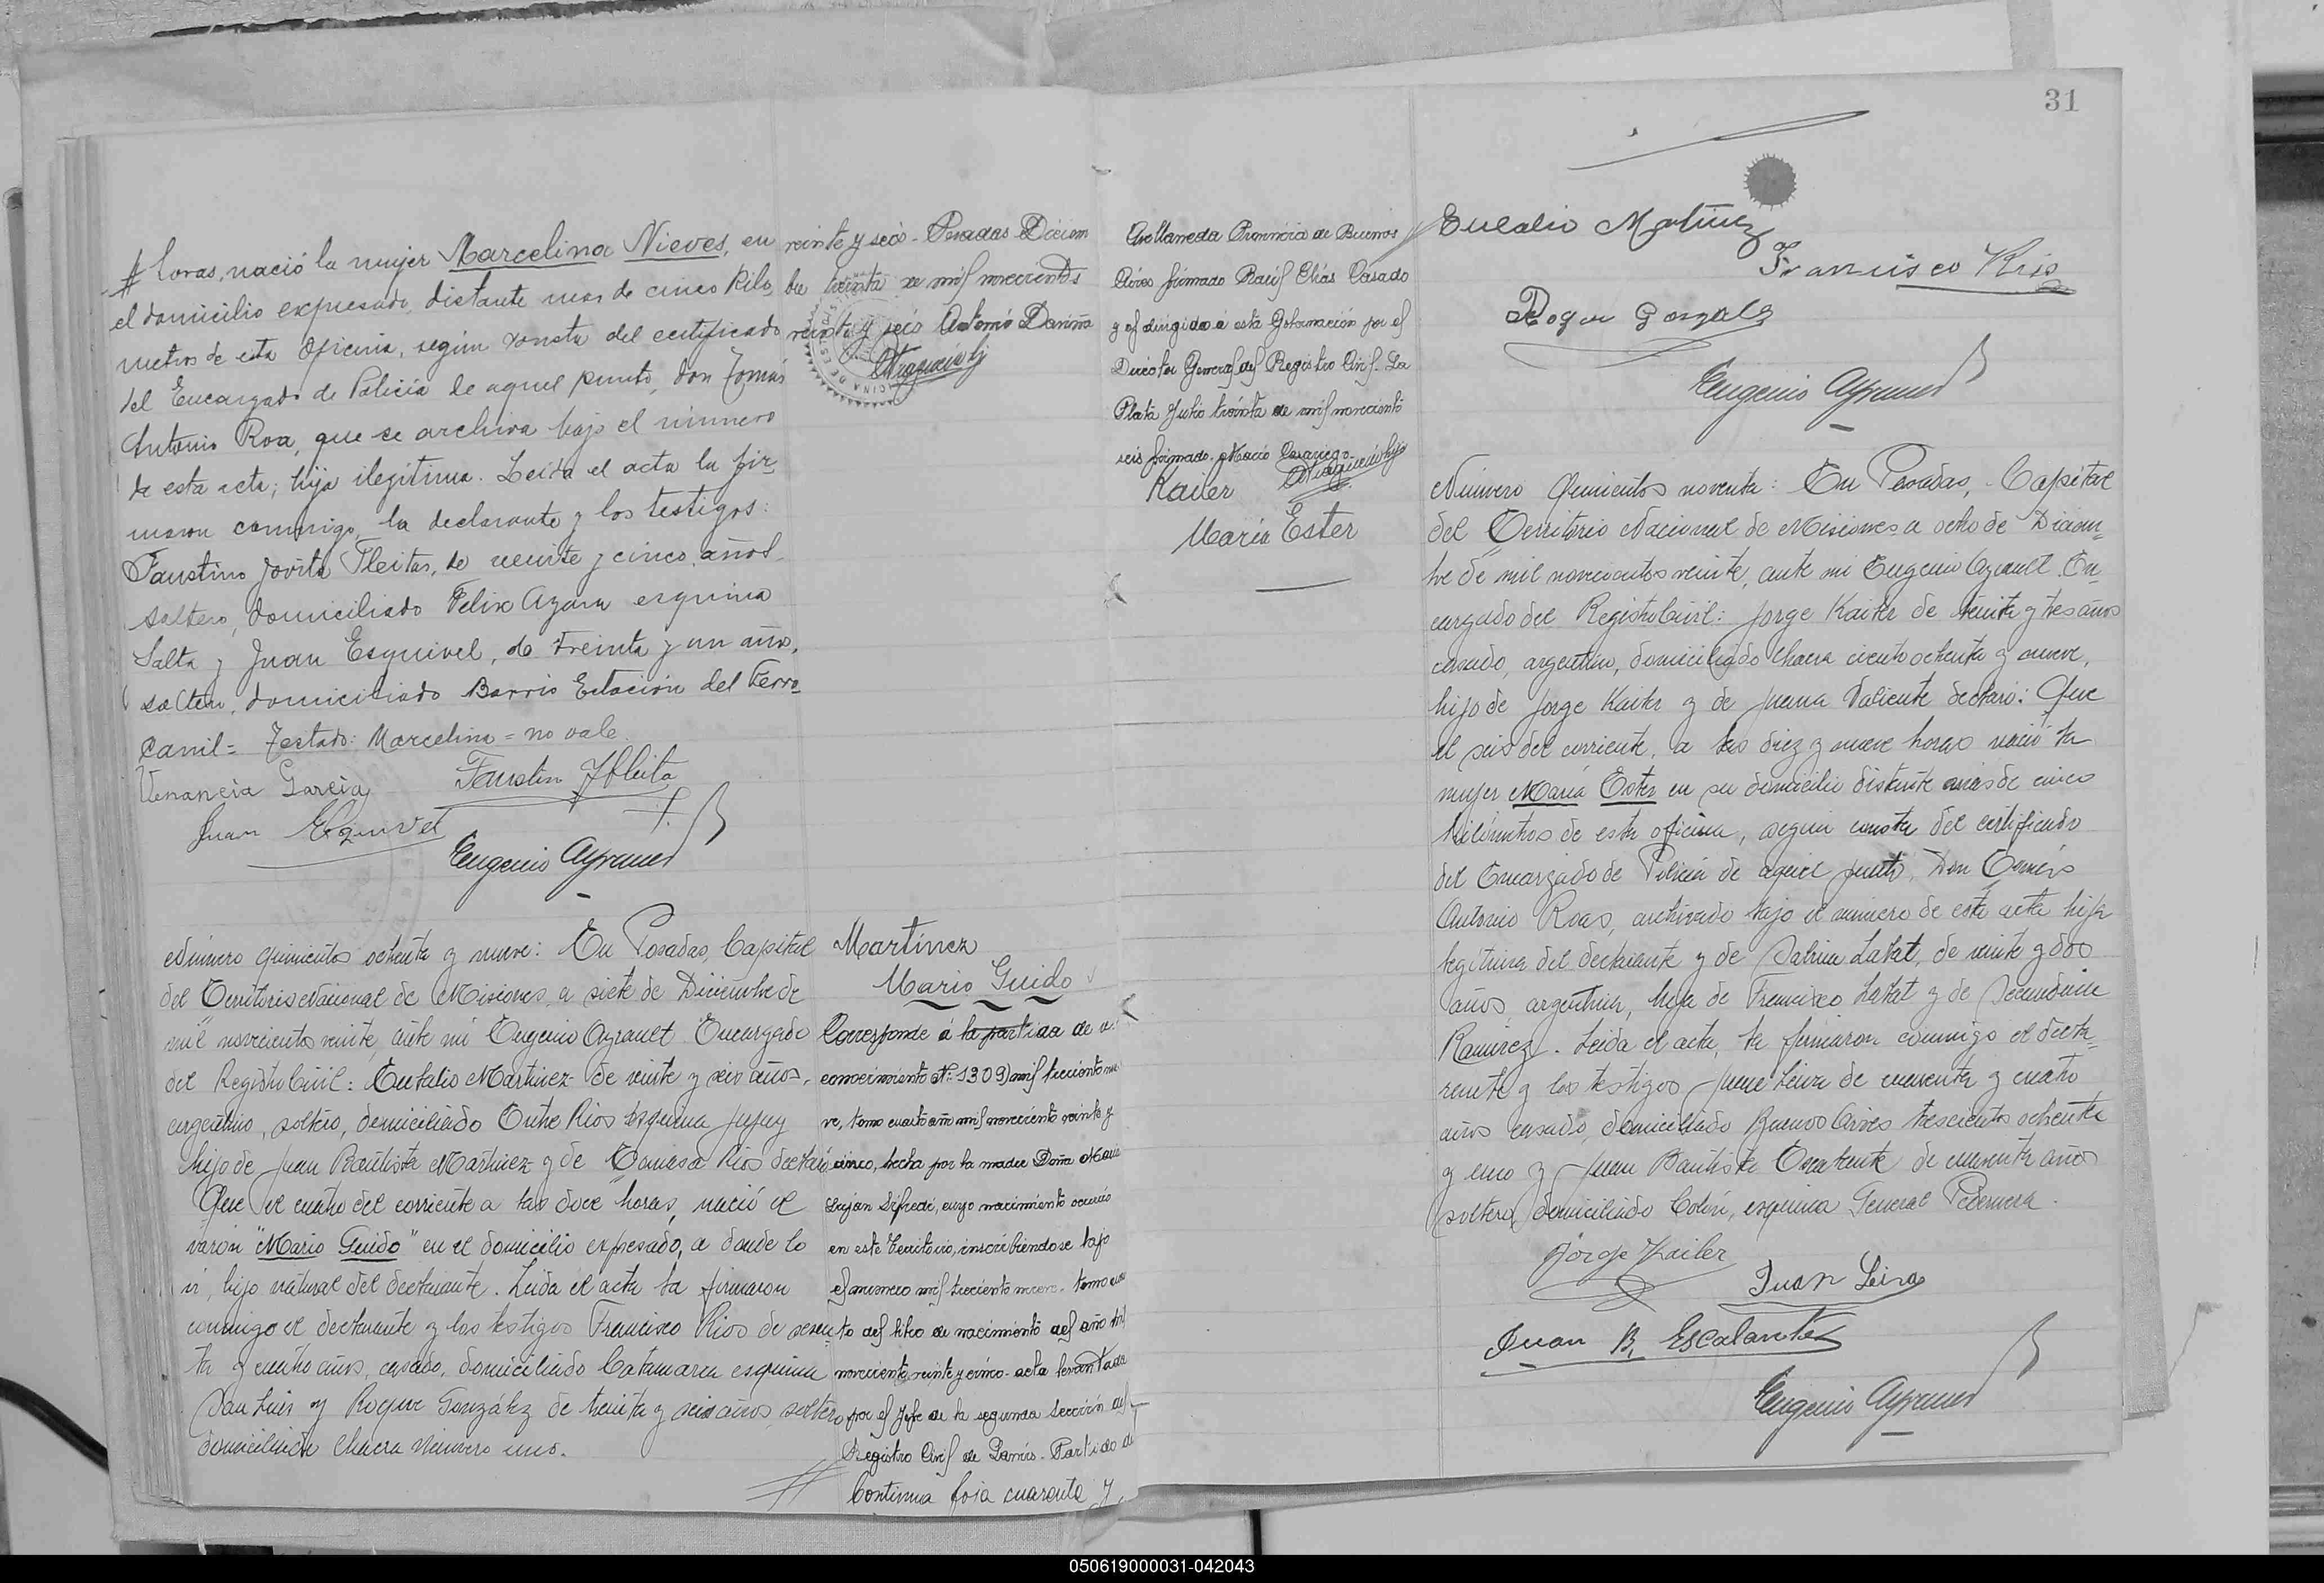 horas, nació la mujer Marcelina Nieves, en
el domicilio expresado, distante mas de cinco kiló
metros de esta Oficina, según consta del certificado
del Encargado de Policía de aquel punto, don Tomás
Antonio Roa, que se archiva bajo el número
de esta acta; hija ilegítima. Leída el acta la fir
maron conmigo, la declarante y los testigos:
Faustino Jovita Fleitas, de veinte y cinco años
soltero, domiciliado Felix Azara esquina
Salta y Juan Esquivel, de treinta y un año,
soltero, domiciliado Barrio Estación del Ferro
carril = Testado: Marcelina = no vale.
Venancia Garcia
Faustin J Fleita
Juan Esquivel
Eugenio Ayrault
veinte y seis - Posadas Diciem
bre treinta de mil novecientos
veinte y seis
Número quinientos ochenta y nueve: En Posadas, Capital
del Territorio Nacional de Misiones, a siete de Diciembre de
mil novecientos veinte, ante mi Eugenio Ayrault Encargado
del Registro Civil: Eulalio Martinez de veinte y seis años,
argentino, soltero, domiciliado Entre Rios esquina Jujuy
hijo de Juan Bautista Martinez y de Tomasa Rios declaró
Que el cuatro del corriente a las doce horas, nació el
varón "Mario Guido" en el domicilio expresado, a donde lo
vi, hijo natural del declarante. Leida el acta la firmaron
conmigo el declarante y los testigos Francisco Rios de sesen
ta y cuatro años, casado, domiciliado Catamarca esquina
San Luis y Roque González de treinta y seis años, soltero
domiciliado Chacra Número uno.
Martínez
Mario Guido
Corresponde á la partida de
conocimiento Nº 1309) mil trecientos nue
ve, tomo cuarto año mil novecientos veinte y
cinco, hecha por la madre Doña María
Lujan, cuyo nacimiento ocurrió
en este Territorio, inscribiendose bajo
el numero mil trecientos nueve, tomo cuar
to del libro de nacimiento del año mil
novecientos veinte y cinco - acta levantada
por el Jefe de la segunda Sección del
Registro Civil de Lanús - Partido de
Continua foja cuarenta y
31
Avellaneda Provincia de Buenos
Aires firmado Raúl Elías Casado
y el dirigido á esta Gobernación por el
Director General del Registro Civil - La
Plata Julio treinta de mil novecientos
seis firmado
Kailer
María Ester
Eulalio Martinez
Francisco Rios
Roque Gonzalez
Eugenio Ayrault
Número Quinientos noventa: En Posadas, Capital
del Territorio Nacional de Misiones a ocho de Diciem
bre de mil novecientos veinte, ante mi Eugenio Ayrault En
cargado del Registro Civil: Jorge Kailer de veinte y tres años
casado, argentino, domiciliado Chacra ciento ochenta y nueve,
hijo de Jorge Kailer y de Juana Valiente declaró: Que
el seis del corriente, a las diez y nueve horas nació la
mujer María Ester en su domicilio distante más de cinco
kilómetros de esta oficina, según consta del certificado
del Encargado de Policía de aquel punto, Don Tomás
Antonio Roas, archivado bajo el número de esta acta hija
legítima del declarante y de Sabina Labat, de veinte y dos
años, argentina, hija de Francisco Labat y de Secundina
Ramirez. Leida el acta, la firmaron conmigo el decla
rante y los testigos Juan Leiva de cuarenta y cuatro
años casado, domiciliado Buenos Aires trescientos ochenta
y uno y Juan Bautista Escalante de cuarenta años
soltero, domiciliado Colón, esquina General Pedernera.
Jorge Kailer
Juan Leiva
Juan B, Escalante
Eugenio Ayrault
050619000031-042043